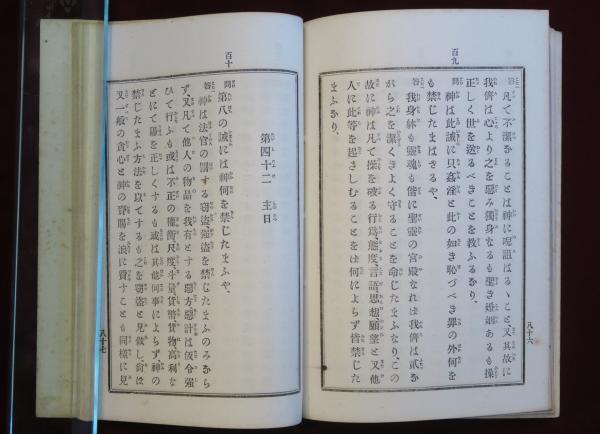 百九
答 凡て不潔なることは神に呪詛はるゝこと、又其故に
我儕は心より之を惡み獨身なるも聖き婚姻あるも操
正しく世を送るべきことを敎ふるなり、
問 神は此誡に只姦淫と此の如き恥づべき罪の外何を
も禁じたまはざるや、
答 我身体も靈魂も偕に聖靈の宮殿なれば我儕は貳な
がら之を潔くきよく守ることを命じたまふなり、この
故に神は凡て操を破る行爲、態度、言語、思想、願望と又他
人に此等を起さしむることをは何によらず皆禁じた
まふなり、
八十六
百十
第四十二 主日
問 第八の誡には神何を禁じたまふや、
答 神は法官の罰する竊盗、强盗を禁じたまふのみなら
ず、又凡て他人の物品を我有とする惡方惡計は假令强
ひて行ふも或は不正の權衡尺度斗量貨幣貨物高利な
どにて陽を正しくするも或は其他何事によらず、神の
禁じたまふ方法を以てするも之を竊盗と見做し、尙ほ
又一般の貪心と神の賚賜を浪に費すことも同樣に見
八十七